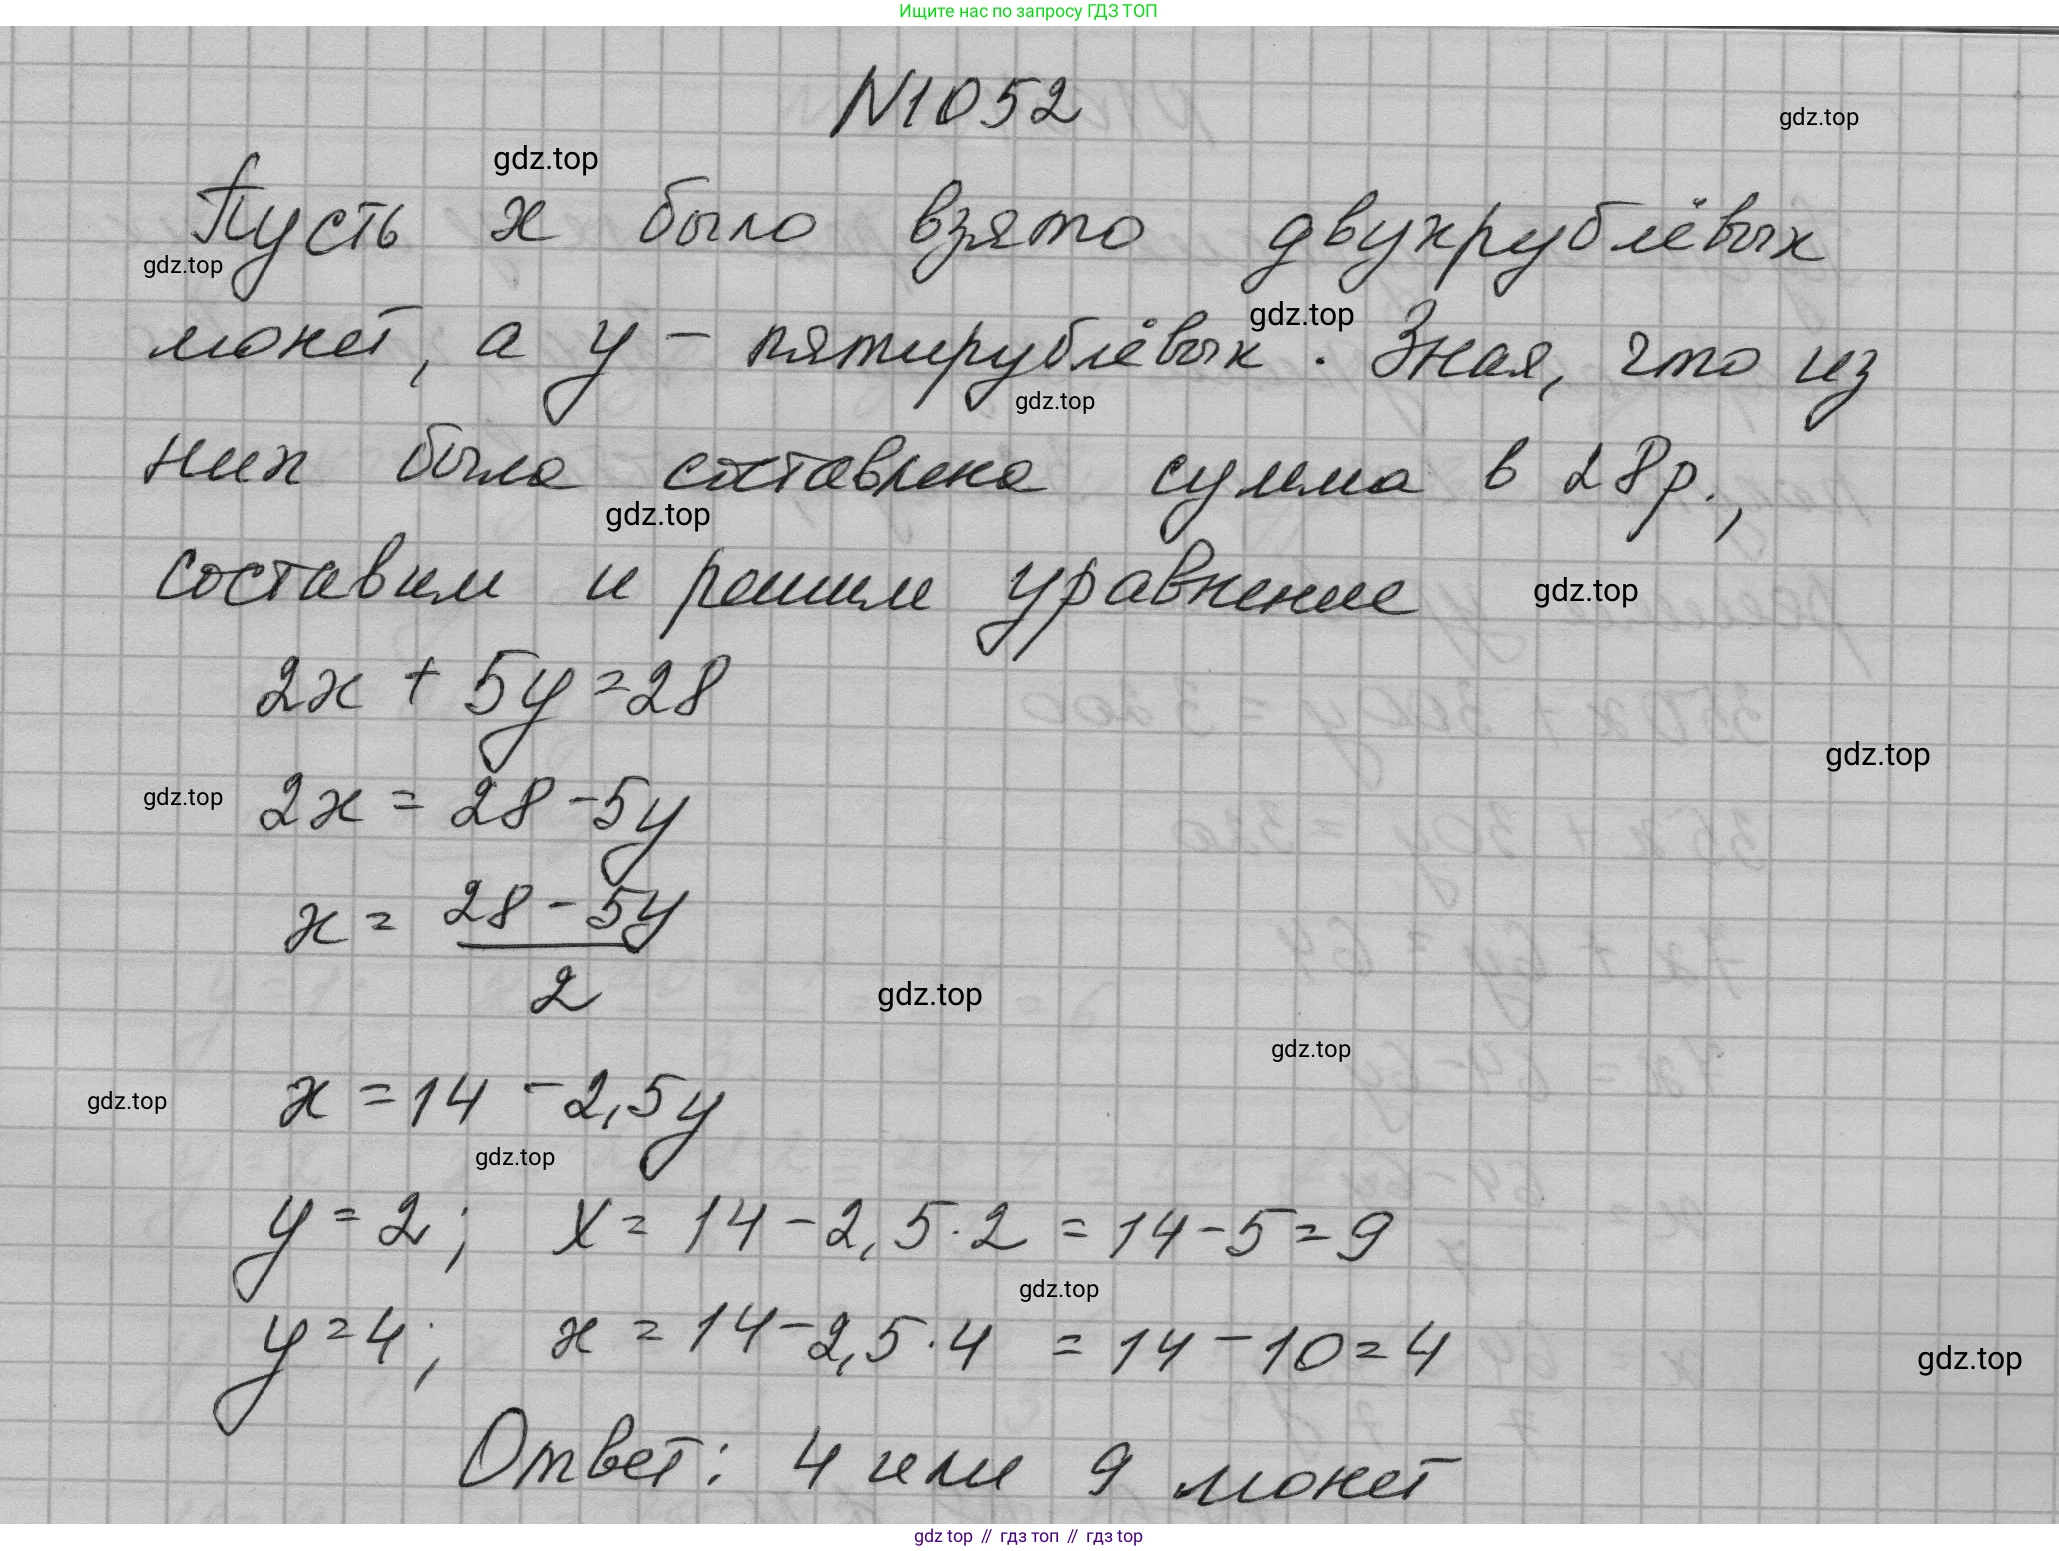 Ищите нас по запросу ГДЗ ТОП
N1052
gdz.top
gdz.top
Пусть х было взято двухрублёвых
gdz.top
gdz.top
монет, а у - пятирублёвых. Зная, что из
gdz.top
них была составлена сумма в 28р.,
gdz.top
составим и решим уравнение
gdz.top
2x + 5y = 28
gdz.top
2x = 28 - 5y
gdz.top
x = 28 - 5y / 2
gdz.top
gdz.top
x = 14 - 2,5y
gdz.top
gdz.top
y = 2; x = 14 - 2,5·2 = 14 - 5 = 9
gdz.top
y = 4; x = 14 - 2,5·4 = 14 - 10 = 4
gdz.top
Ответ: 4 или 9 монет
gdz top // гдз топ // гдз top